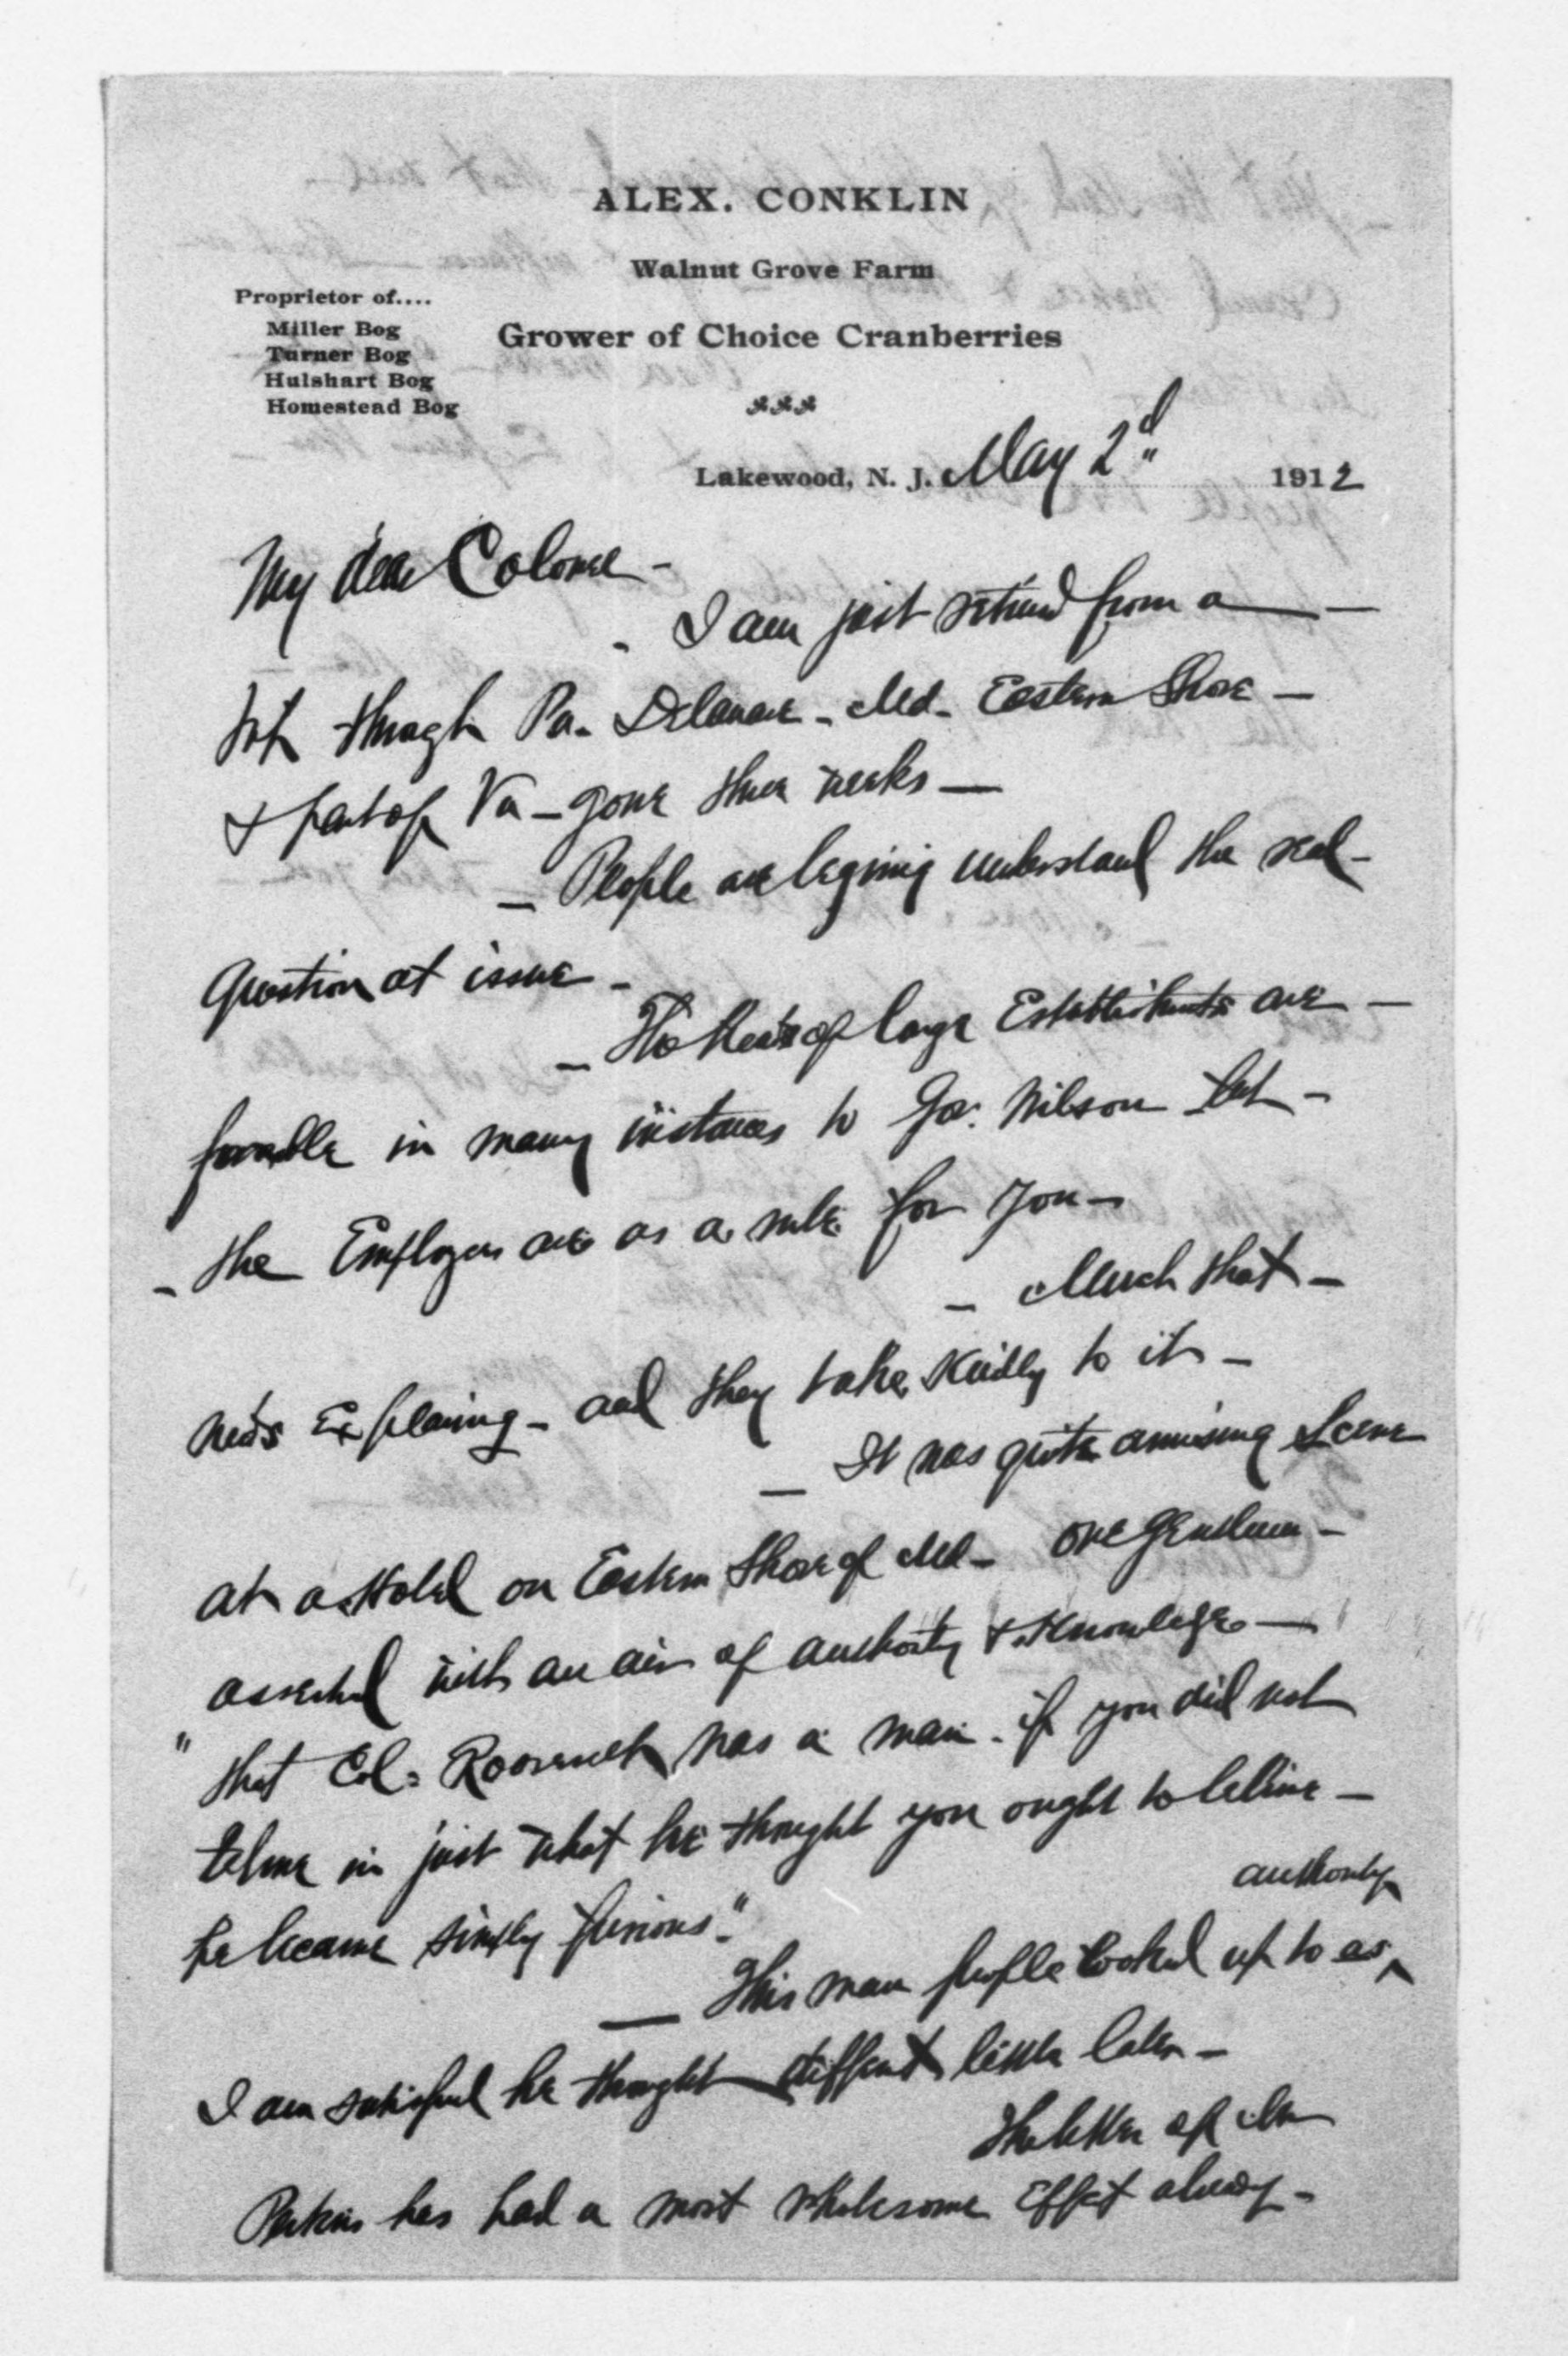 ALEX. CONKLIN
Walnut Grove Farm
Proprietor of....
Miller Bog
Turner Bog
Hulshart Bog
Homestead Bog
Grower of Choice Cranberries
Lakewood, N. J. May 2d 1912
My dear Colonel -
- I am just returned from a —
trip through Pa. Delaware - Md. Eastern Shore -
& part of Va - gone three weeks —
- People are begining understand the real -
Question at issue -
- The heads of large Establishments are -
favorable in many instances to Gov. Wilson but -
- the Employees are as a rule for you -
- Much that -
needs Explaining - and they take kindly to it -
- It was quite amusing Scene
at a Hotel on Eastern Shore of Md - one gentleman -
asserted with an air of authority & Knowledge —
" that Col. Roosevelt was a man. if you did not
believe in just what he thought you ought to believe -
he became simply furious".
— This man people looked up to as authority
I am satisfied he thought different little later -
The letter of Mr
Perkins has had a most wholesome Effect already -